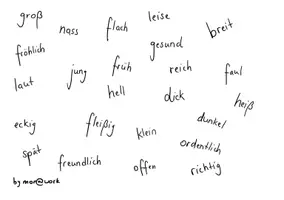 groß
nass
flach
leise
breit
fröhlich
gesund
laut
jung
früh
reich
faul
hell
dick
heiß
eckig
fleißig
klein
dunkel
ordentlich
spät
freundlich
offen
richtig
by mon@work